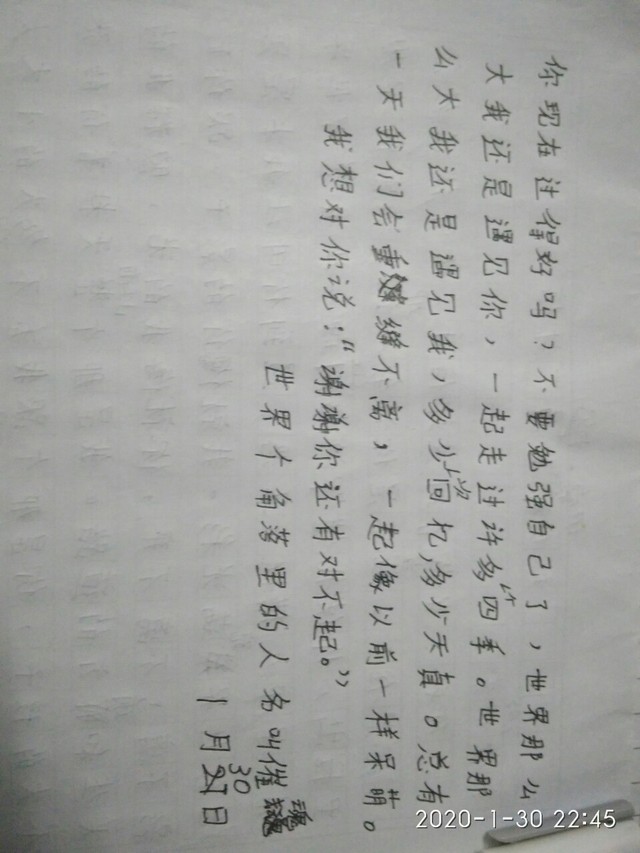 你现在过得好吗？不要勉强自己了，世界那么
大我还是遇见你，一起走过许多个四季。世界那
么大我还是遇见我，多少次回忆，多少天真。总有
一天我们会重缝不离，一起像以前一样呆萌。
我想对你说：“谢谢你还有对不起。”
世界个角落里的人 名叫催魂
1月30日
2020-1-30 22:45